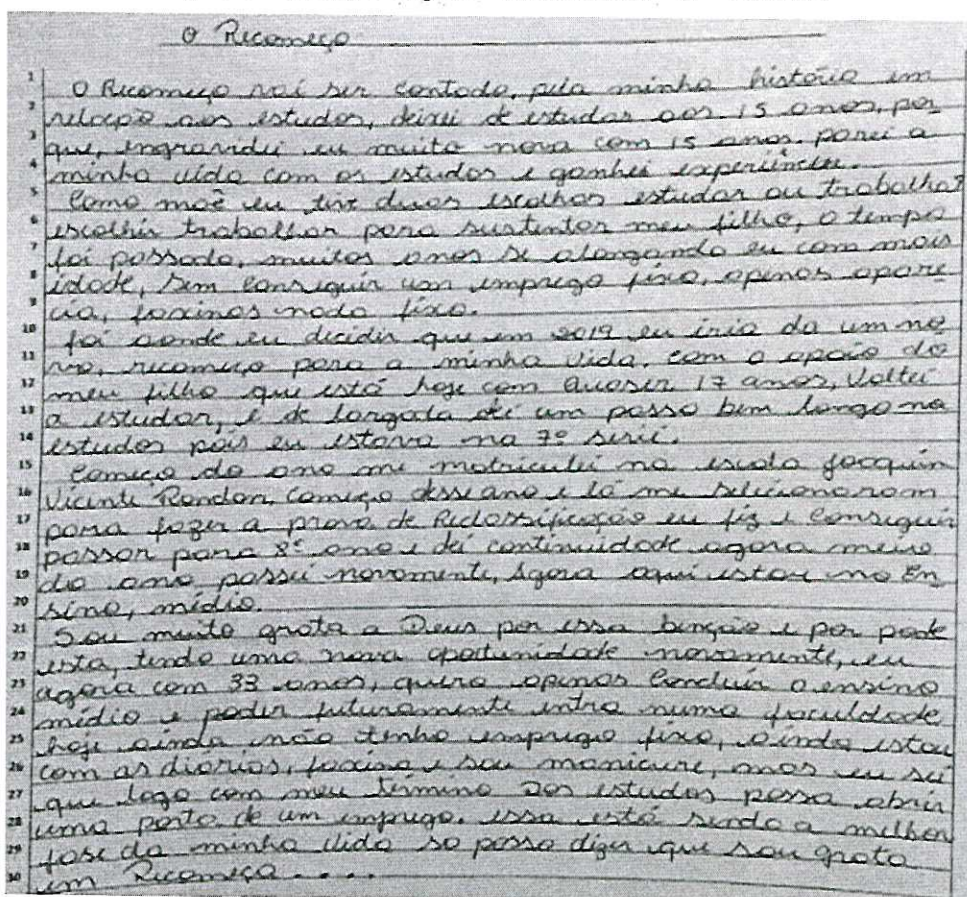 O Recomeço
1 O Recomeço vai ser contado, pela minha história em
2 relação aos estudos, deixei de estudar aos 15 anos, por
3 que, engravidei eu muito nova com 15 anos. parei a
4 minha vida com os estudos e ganhei experiência.
5 Como mãe eu tive duas escolhas estudar ou trabalhar
6 escolhir trabalhar para sustentar meu filho, o tempo
7 foi passado, muitos anos se alongando eu com mais
8 idade, sem conseguir um emprego fixo, apenas apare
9 cia, faxinas nada fixo.
10 foi aonde eu decidir que em 2019 eu iria da um no
11 vo, recomeço para a minha vida. com o apoio do
12 meu filho que está hoje com quaser 17 anos, Voltei
13 a estudar, e de largada dei um passo bem longo na
14 estudos pois eu estava na 7º serie.
15 Começo do ano me matriculei na escola Jocquin
16 Vicente Rondon, começo desse ano e lá me selicionaram
17 para fazer a prova de Reclassificação eu fiz e conseguir
18 passar para 8º ano e dei continuidade agora meiso
19 do ano passei novamente, Agora aqui estou no En
20 sino, médio.
21 Sou muito grata a Deus por essa benção e por pode
22 esta, tendo uma nova oportunidade novamente, eu
23 agora com 33 anos, quero apenas Concluir o ensino
24 médio e poder futuramente intra numa faculdade
25 hoje ainda não tenho emprego fixo, ainda estou
26 com as diarias, faxina e sou manicure, mas eu sei
27 que logo com meu término dos estudos possa abrir
28 uma porta de um emprego. essa está sendo a melhor
29 fase da minha vida so posso dizer que sou grata
30 um Recomeço....